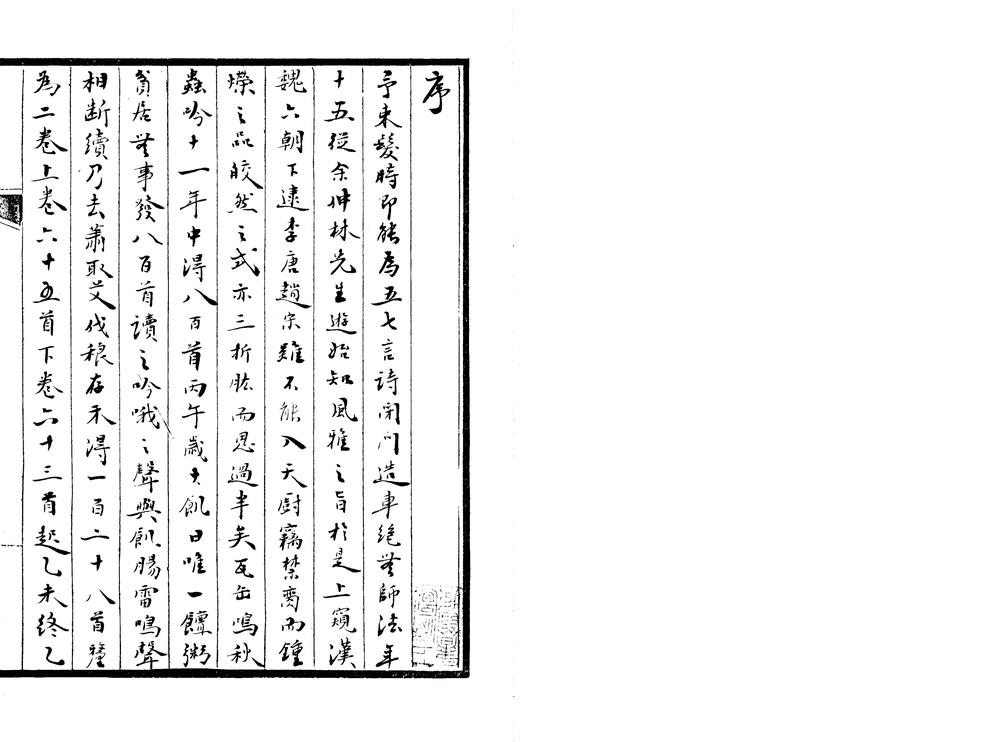 序
予束髮時即能為五七言詩閉門造車絕無師法年
十五從余伸林先生遊始知風雅之旨於是上窺漢
魏六朝下逮李唐趙宋雖不能入天厨竊禁臠而鍾
嶸之品皎然之式亦三折肱而思過半矣瓦缶鳴秋
蟲吟十一年中得八百首丙午歲大飢日唯一饘粥
貧居無事發八百首讀之吟哦之聲與飢腸雷鳴聲
相斷續乃去蕭取艾伐稂存禾得一百二十八首釐
為二卷上卷六十五首下卷六十三首起乙未終乙